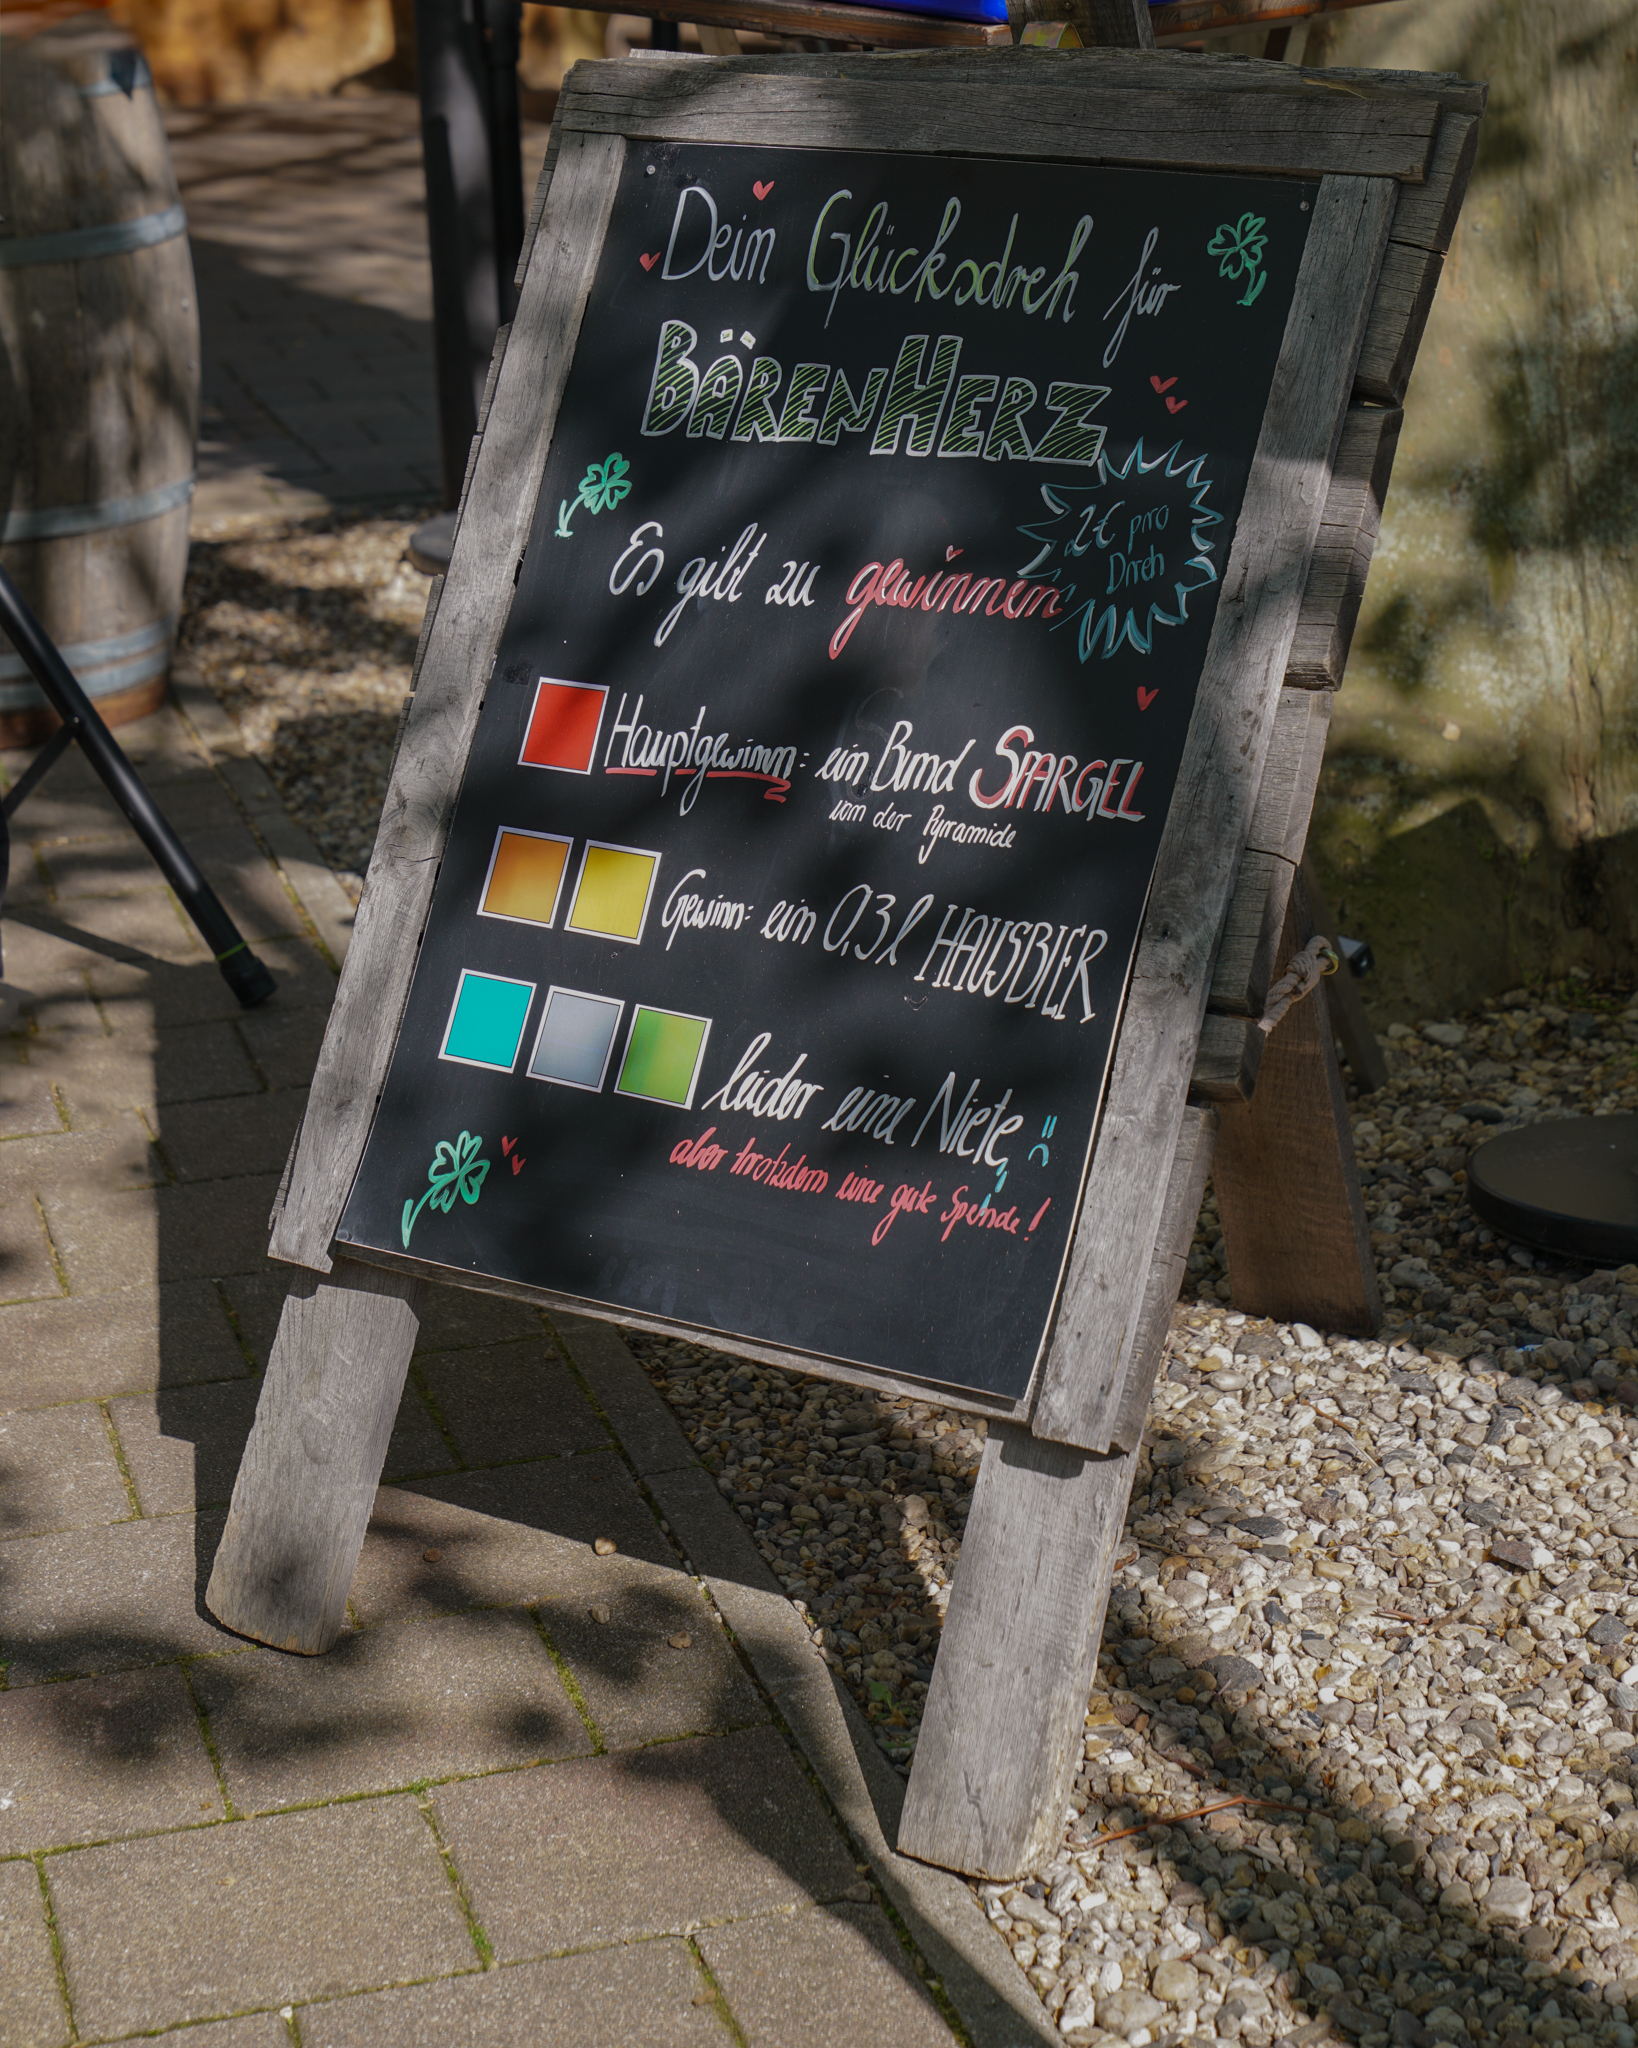 Dein Glücksdreh für
BÄRENHERZ
2€ pro
Dreh
Es gibt zu gewinnen
Hauptgewinn: ein Bund SPARGEL
von der Pyramide
Gewinn: ein 0,3l HAUSBIER
leider eine Niete :(
aber trotzdem eine gute Spende!